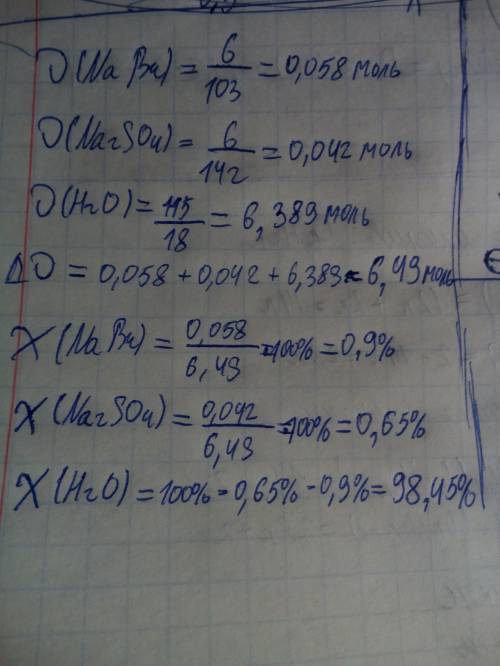 υ(NaBr) = 6/103 = 0,058 моль
υ(Na2SO4) = 6/142 = 0,042 моль
υ(H2O) = 115/18 = 6,389 моль
Δυ = 0,058 + 0,042 + 6,389 = 6,49 моль
X(NaBr) = 0,058/6,49 · 100% = 0,9%
X(Na2SO4) = 0,042/6,49 · 100% = 0,65%
X(H2O) = 100% - 0,65% - 0,9% = 98,45%